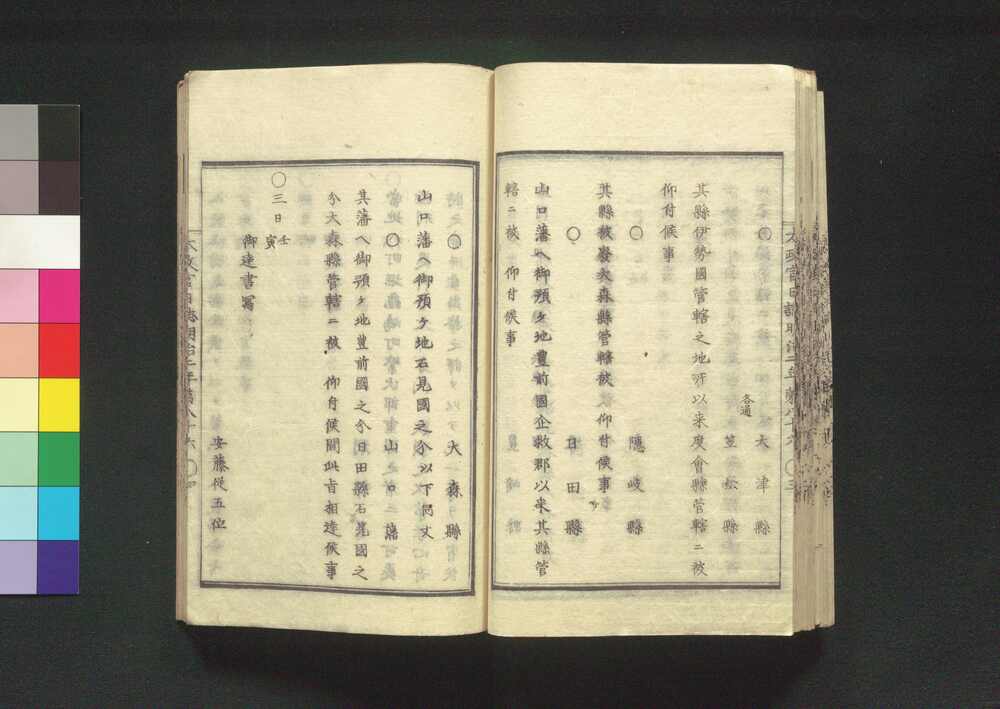 〇　大津縣
各通
笠松縣
其縣伊勢國管轄之地所以来度會縣管轄ニ被
仰付候事
〇　隱岐縣
其縣被廢大森縣管轄被　仰付候事
〇　日田縣
山口藩ヘ御預ケ地豊前國企救郡以来其縣管
轄ニ被　仰付候事
〇　大森縣
山口藩ヘ御預ケ地石見國之分以下同文
〇　山口藩
其藩ヘ御預ケ地豊前國之分日田縣石見國之
分大森縣管轄ニ被　仰付候間此旨相達候事
〇三日壬寅
御達書寫
安藤從五位
太政官日誌明治二年第八十六　〇三
太政官日誌明治二年第八十六　〇